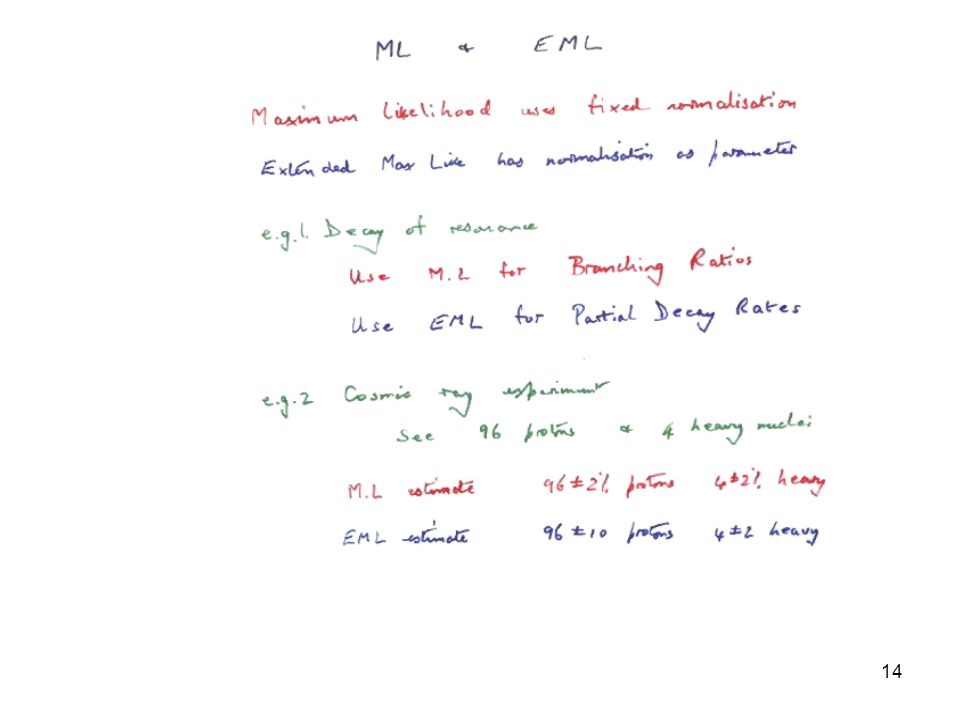 ML & EML
Maximum Likelihood uses fixed normalisation
Extended Max Like has normalisation as parameter
e.g.1. Decay of resonance
Use M.L for Branching Ratios
Use EML for Partial Decay Rates
e.g.2 Cosmic ray experiment
See 96 protons & 4 heavy nuclei
M.L estimate 96±2% protons 4±2% heavy
EML estimate 96±10 protons 4±2 heavy
14